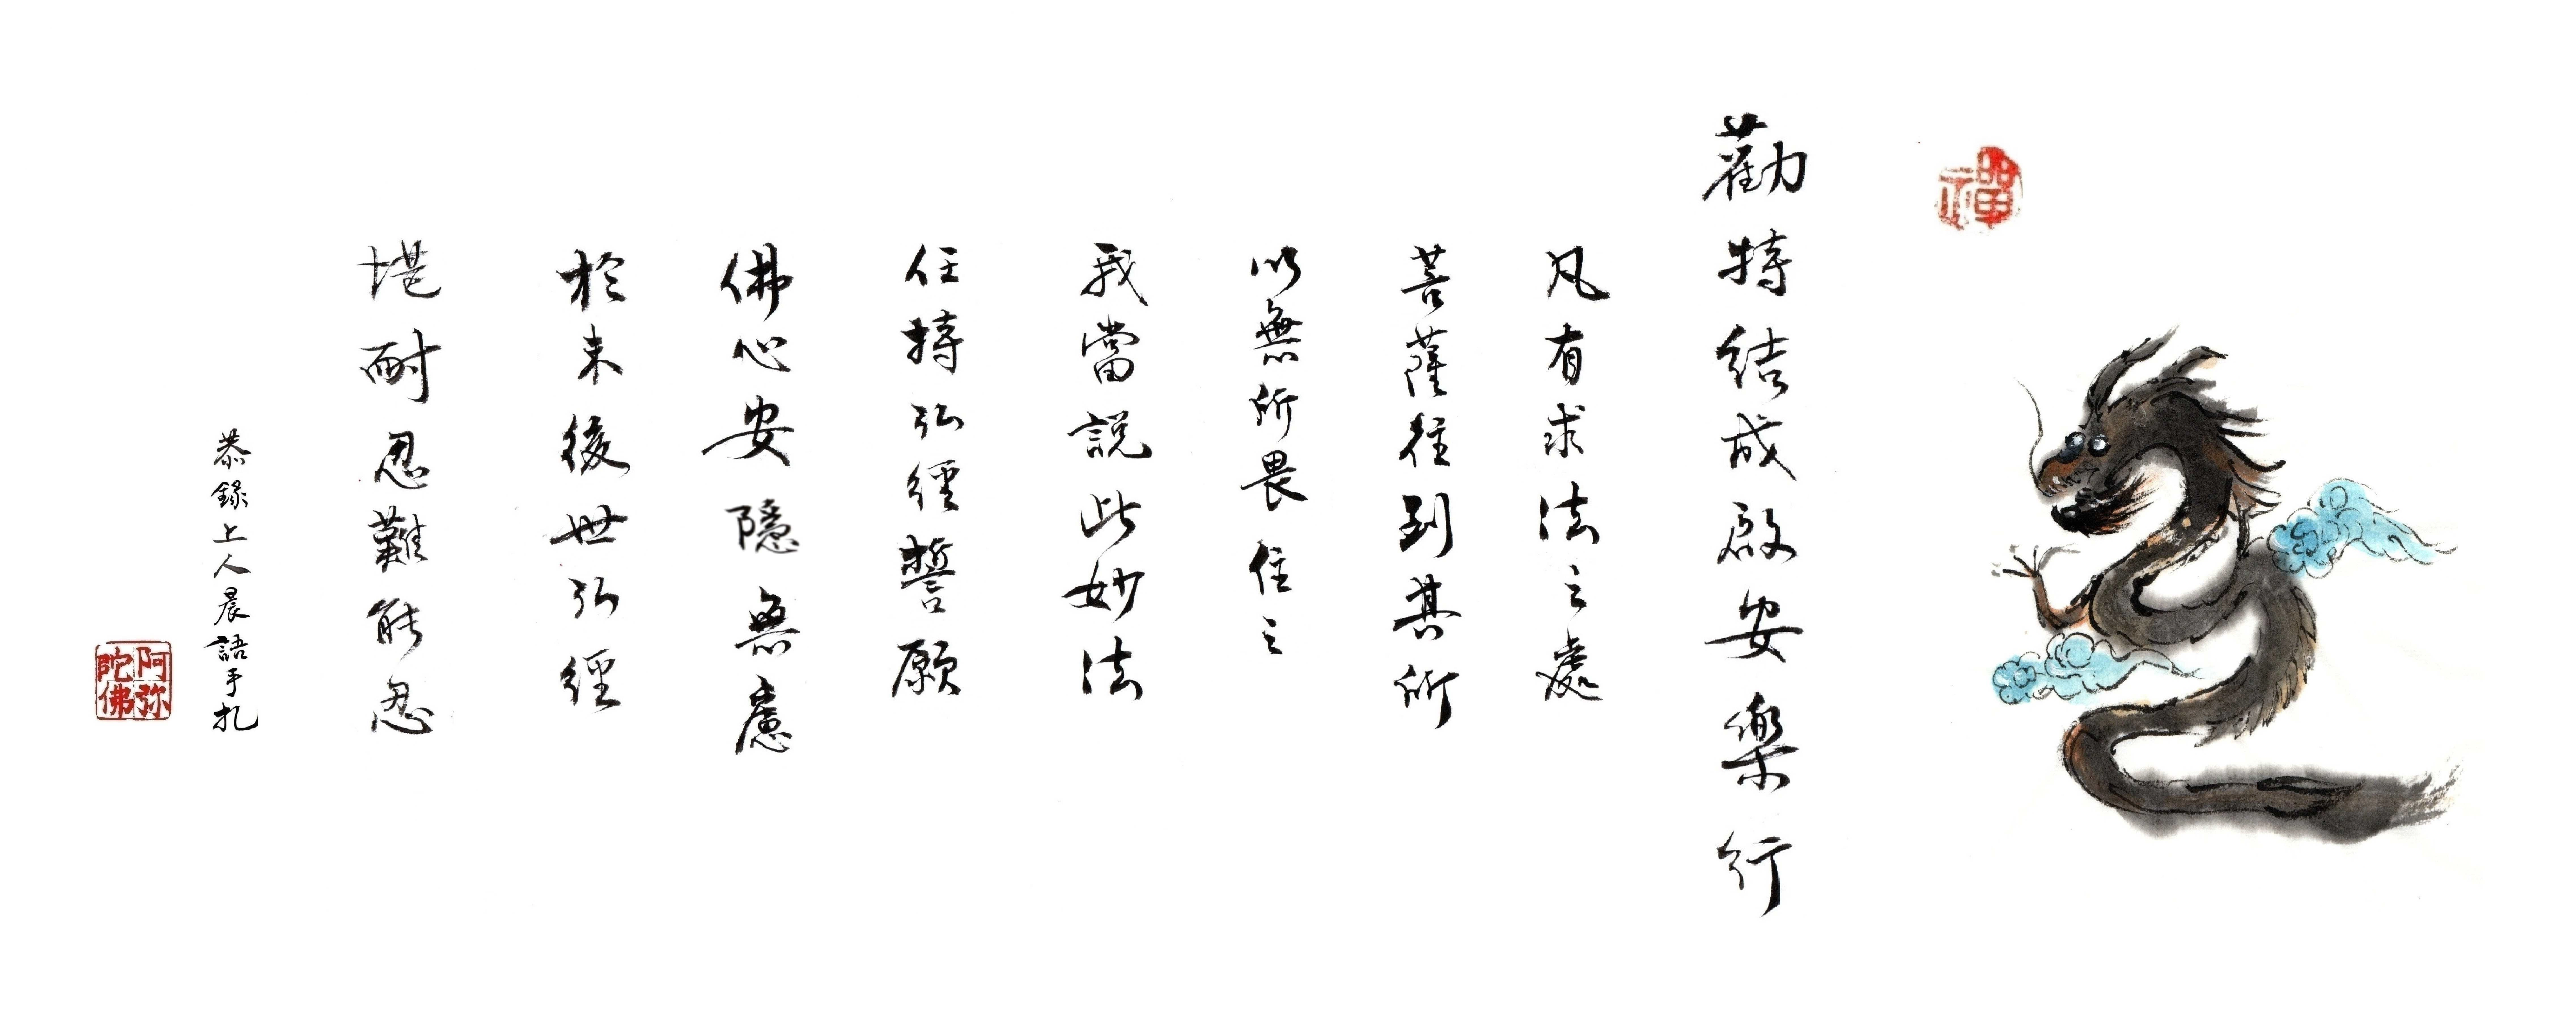 禪
勸持結成啟安樂行
凡有求法之處
菩薩往到其所
以無所畏住之
我當說此妙法
任持弘經誓願
佛心安隱無慮
於未後世弘經
堪耐忍難能忍
恭錄上人晨語手扎
阿弥
陀佛